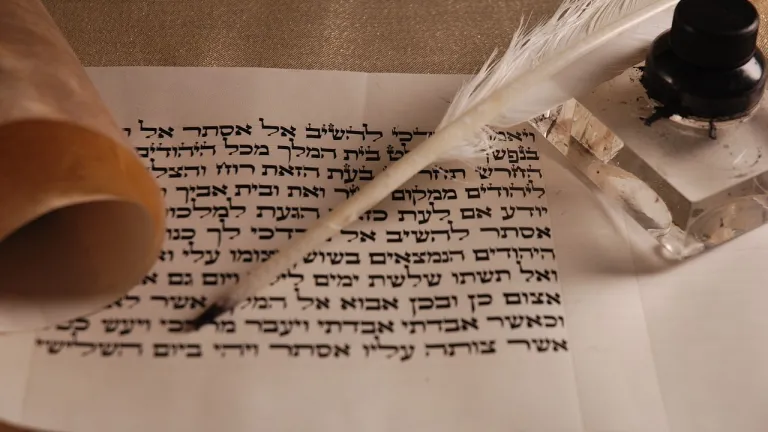 ויאמר להשיב אל אסתר אל
בנפשך בית המלך מכל היהודים
החרש בעת הזאת רוח
ליהודים ממקום ואת ובית אביך
יודע אם לעת כזאת הגעת
אסתר להשיב אל מרדכי לך
היהודים הנמצאים בשושן וצומו עלי
ואל תשתו שלשת ימים לילה ויום גם
אצום כן ובכן אבוא אל המלך אשר
וכאשר אבדתי אבדתי ויעבר מרדכי ויעש
אשר צותה עליו אסתר ויהי ביום השלישי